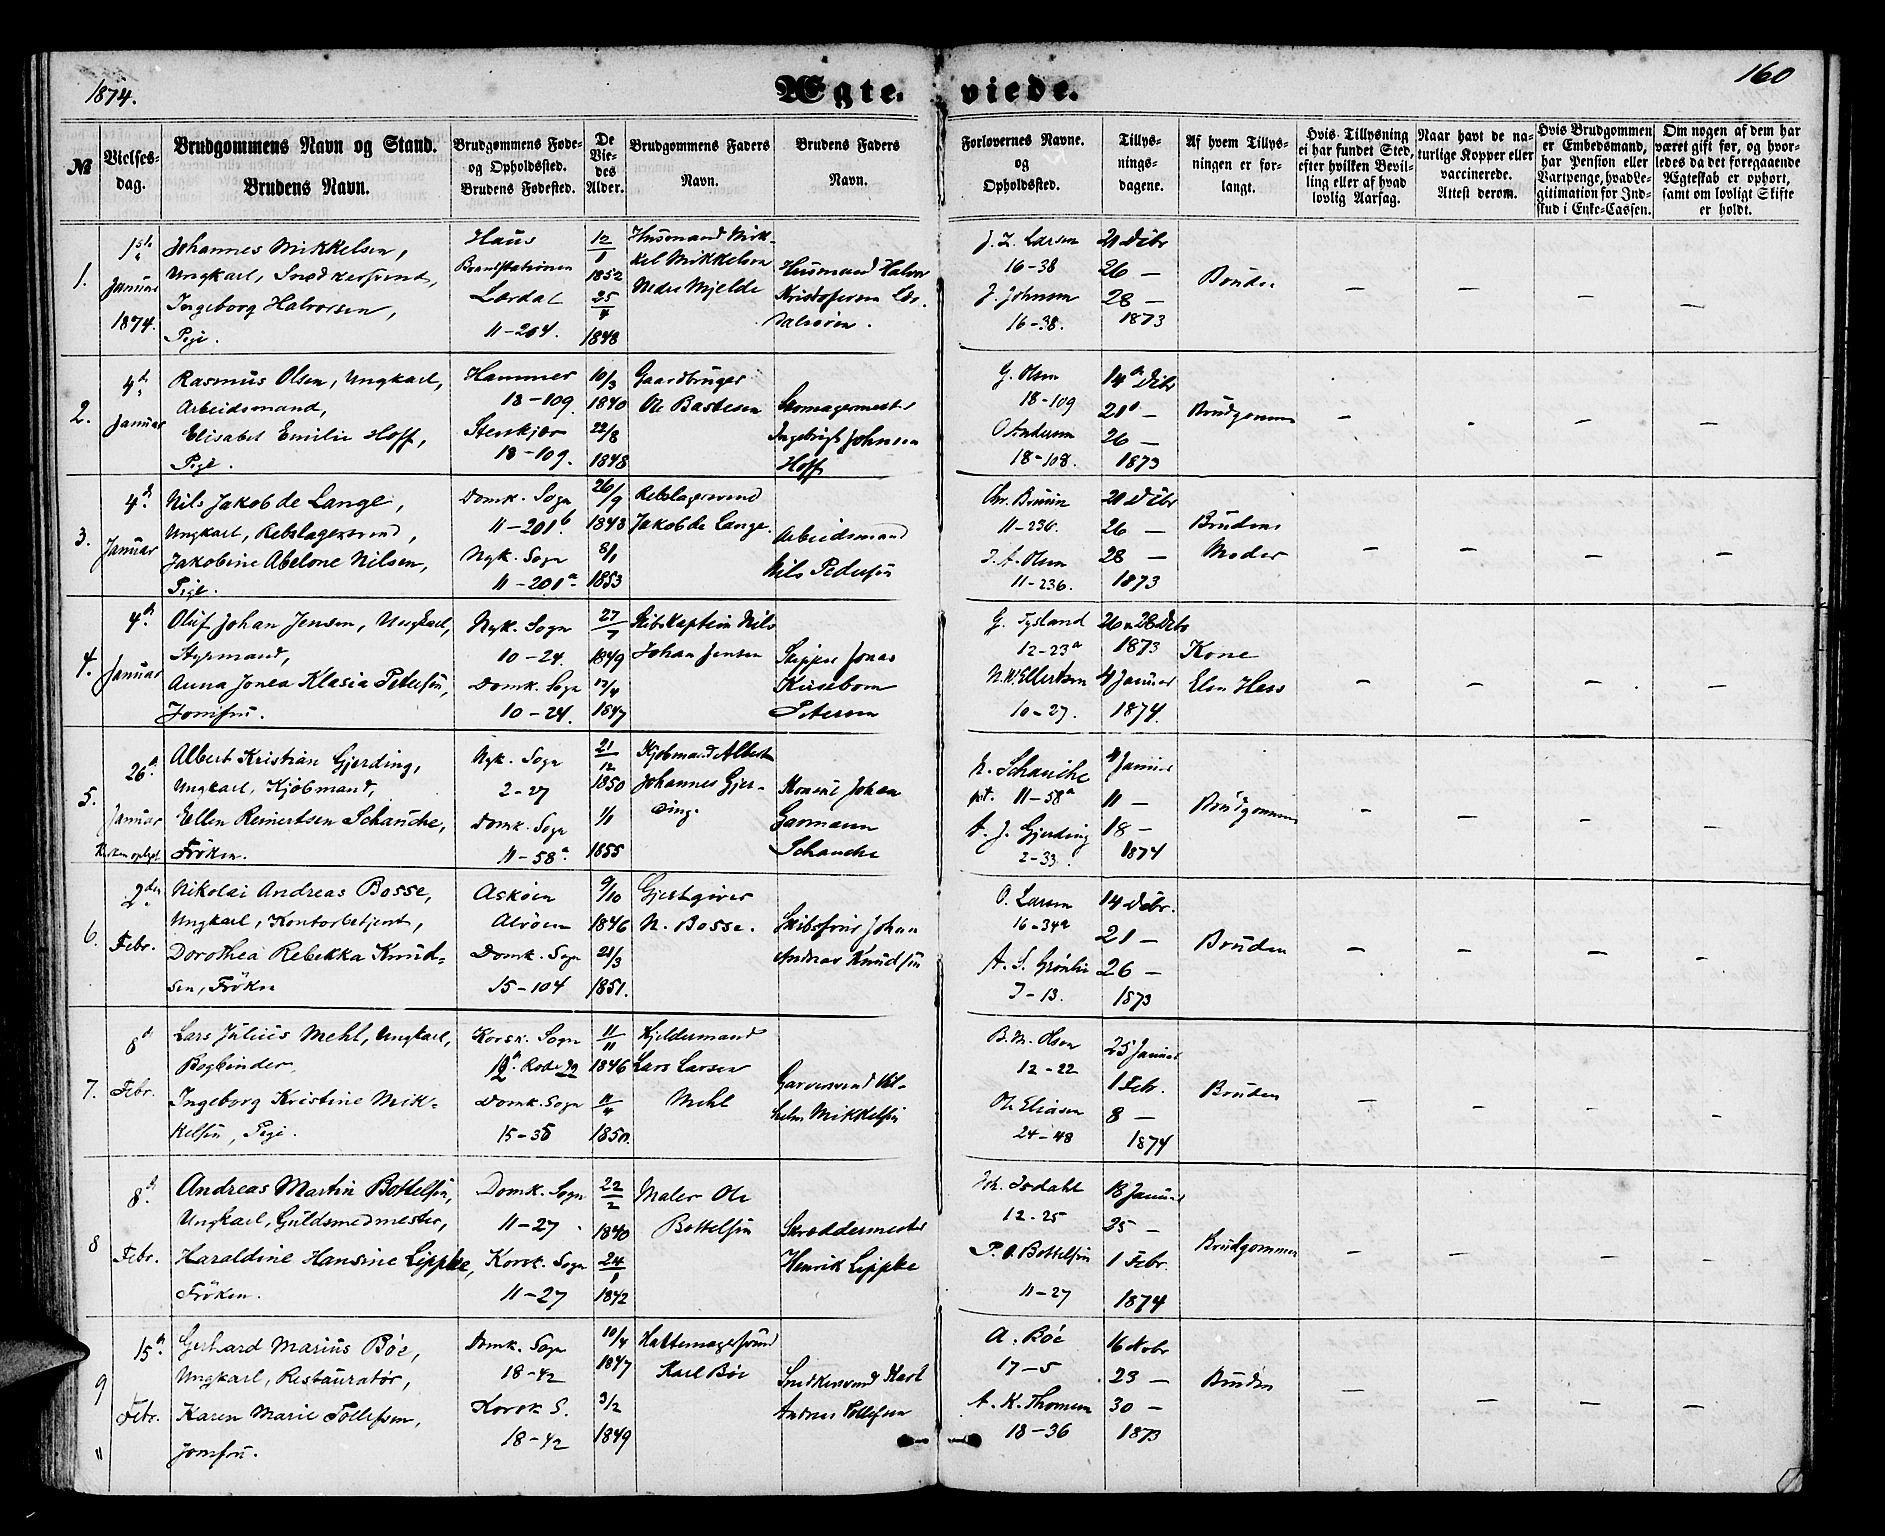 1874.
Ægte-viede.
160
№
Vielses-
dag.
Brudgommens Navn og Stand.
Brudens Navn.
Brudgommens Føde-
og Opholdssted.
Brudens Fødested.
De
Vie-
des
Alder.
Brudgommens Faders
Navn.
Brudens Faders
Navn.
Forlovernes Navne.
og
Opholdssted.
Tillys-
nings-
dagene.
Af hvem Tillys-
ningen er for-
langt.
Hvis Tillysning
ei har fundet Sted,
efter hvilken Bevil-
ling eller af hvad
lovlig Aarsag.
Naar havt de na-
turlige Kopper eller
vaccinerede.
Attest derom.
Hvis Brudgommen
er Embedsmand,
har Pension eller
Vartpenge, hvad Le-
gitimation for Ind-
skud i Enke-Cassen.
Om nogen af dem har
været gift før, og hvor-
ledes da det foregaaende
Ægteskab er ophørt,
samt om lovligt Skifte
er holdt.
1.
Januar
1874.
Johannes Mikkelsen,
Ungkarl, Snedkersvend,
Ingeborg Halvorsen,
Pige.
Haus
Brandstationen
Lærdal
11-204.
12/1
1852
25/4
1848
Husmand Mik-
kel Mikkelsen
Nedre Mjelde
Husmand Halvor
Kristofersen Lær-
dalsøren.
J. Z. Larsen
16-38
J. Johnsen
16-38.
21 Dcbr
26 —
28 —
1873
Bruden
— — — —
2.
4de
Januar
Rasmus Olsen, Ungkarl,
Arbeidsmand,
Elisabet Emilie Hoff,
Pige.
Hammer
18-109
18-109.
10/3
1840
22/8
1848
Gaardbruger
Ole Bastesen
Skomagermester
Ingebrigt Johnsen
Hoff
G. Olsen
18-109
O Andersen
18-108.
14de Dcbr
21de —
26 —
1873
Brudgommen
3.
4de
Januar
Nils Jakob de Lange,
Ungkarl, Rebslagersvend,
Jakobine Abelone Nilsen,
Pige.
Domk. Sogn
11-201b
Nyk. Sogn
11-201a
26/9
1848
8/1
1853
Rebslagersvend
Jakob de Lange.
Arbeidsmand
Nils Pedersen
Chr. Bruun
11-236.
J. A. Olsen
11-236.
21 Dcbr
26 —
28 —
1873
Brudens
Moder
— — — —
4.
4de
Januar
Oluf Johan Jensen, Ungkarl,
Styrmand,
Anna Jonea Klasia Petersen,
Jomfru.
Nyk. Sogn
10-24.
Domk. Sogn
10-24.
27/7
1849
1847
Skibskaptein Nils
Johan Jensen
Skipper Jonas
Kirsebom
Petersen
G. Tysland
12-23a
N. W. Ellertsen
10-27.
26 & 28 Dcbr
1873
4 Januar
1874.
Kone
Elen Hess
— — — —
5.
26de
Januar
Albert Kristian Gjerding,
Ungkarl, Kjøbmand,
Ellen Reinertsen Schanche,
Frøken.
Nyk. Sogn
2-27
Domk. Sogn
11-58a.
21/12
1850
1/1
1855
Kjøbmand Albert
Johannes Gjer-
ding.
Konsul Johan
Garmann
Schanche
N. Schanche
11-58a
A. J. Gjerding
2-33.
4 Januar
11 —
18 —
1874
Brudgommen
— — — —
6.
2den
Febr.
Nikolai Andreas Bosse,
Ungkarl, Kontorbetjent,
Dorothea Rebekka Knud-
sen, Frøken
Askøen
Alvøen
Domk. Sogn
15-104
9/10
1846
21/3
1851.
Gjestgiver
N. Bosse.
Johan
Andreas Knudsen
O. Larsen
16-34a
A. S. Grønlie
7-13.
14 Dcbr.
21 —
26 —
1873
Bruden
— — — —
7.
8de
Febr.
Lars Julius Mehl, Ungkarl,
Bogbinder,
Ingeborg Kristine Mik-
kelsen, Pige.
Korsk. Sogn
Domk. Sogn
15-35
11/11
1846
11/4
1850.
Kjeldermand
Lars Larsen
Mehl
Garversvend Vil-
helm Mikkelsen
B. M. Olsen
12-22
Ole Eliasen
24-48
25 Januar
1 Febr.
8 —
1874
Bruden
— — — —
8
8de
Febr.
Andreas Martin Bottelsen,
Ungkarl, Guldsmedmester,
Haraldine Hansine Lippke,
Frøken.
Domk. Sogn
11-27
Korsk. Sogn
11-27
22/2
1840
24/1
1842
Maler Ole
Bottelsen
Skreddermester
Henrik Lippke
Joh. Isdahl
12-25
P. O. Bottelsen
11-27
18 Januar
25 —
1 Febr.
1874
Brudgommen
— — — —
9
15de
Febr.
Gerhard Marius Bøe,
Ungkarl, Restauratør,
Karen Marie Tollefsen,
Jomfru.
Domk. Sogn
18-42
Korsk S.
18-42
10/4
1847
3/2
1849
Hattemagersvend
Karl Bøe
Snedkersvend Karl
Andreas Tollefsen
A. Bøe
17-5
A. K. Thomsen
18-36
16 Novbr
23 —
30 —
1873
Bruden
— — — —